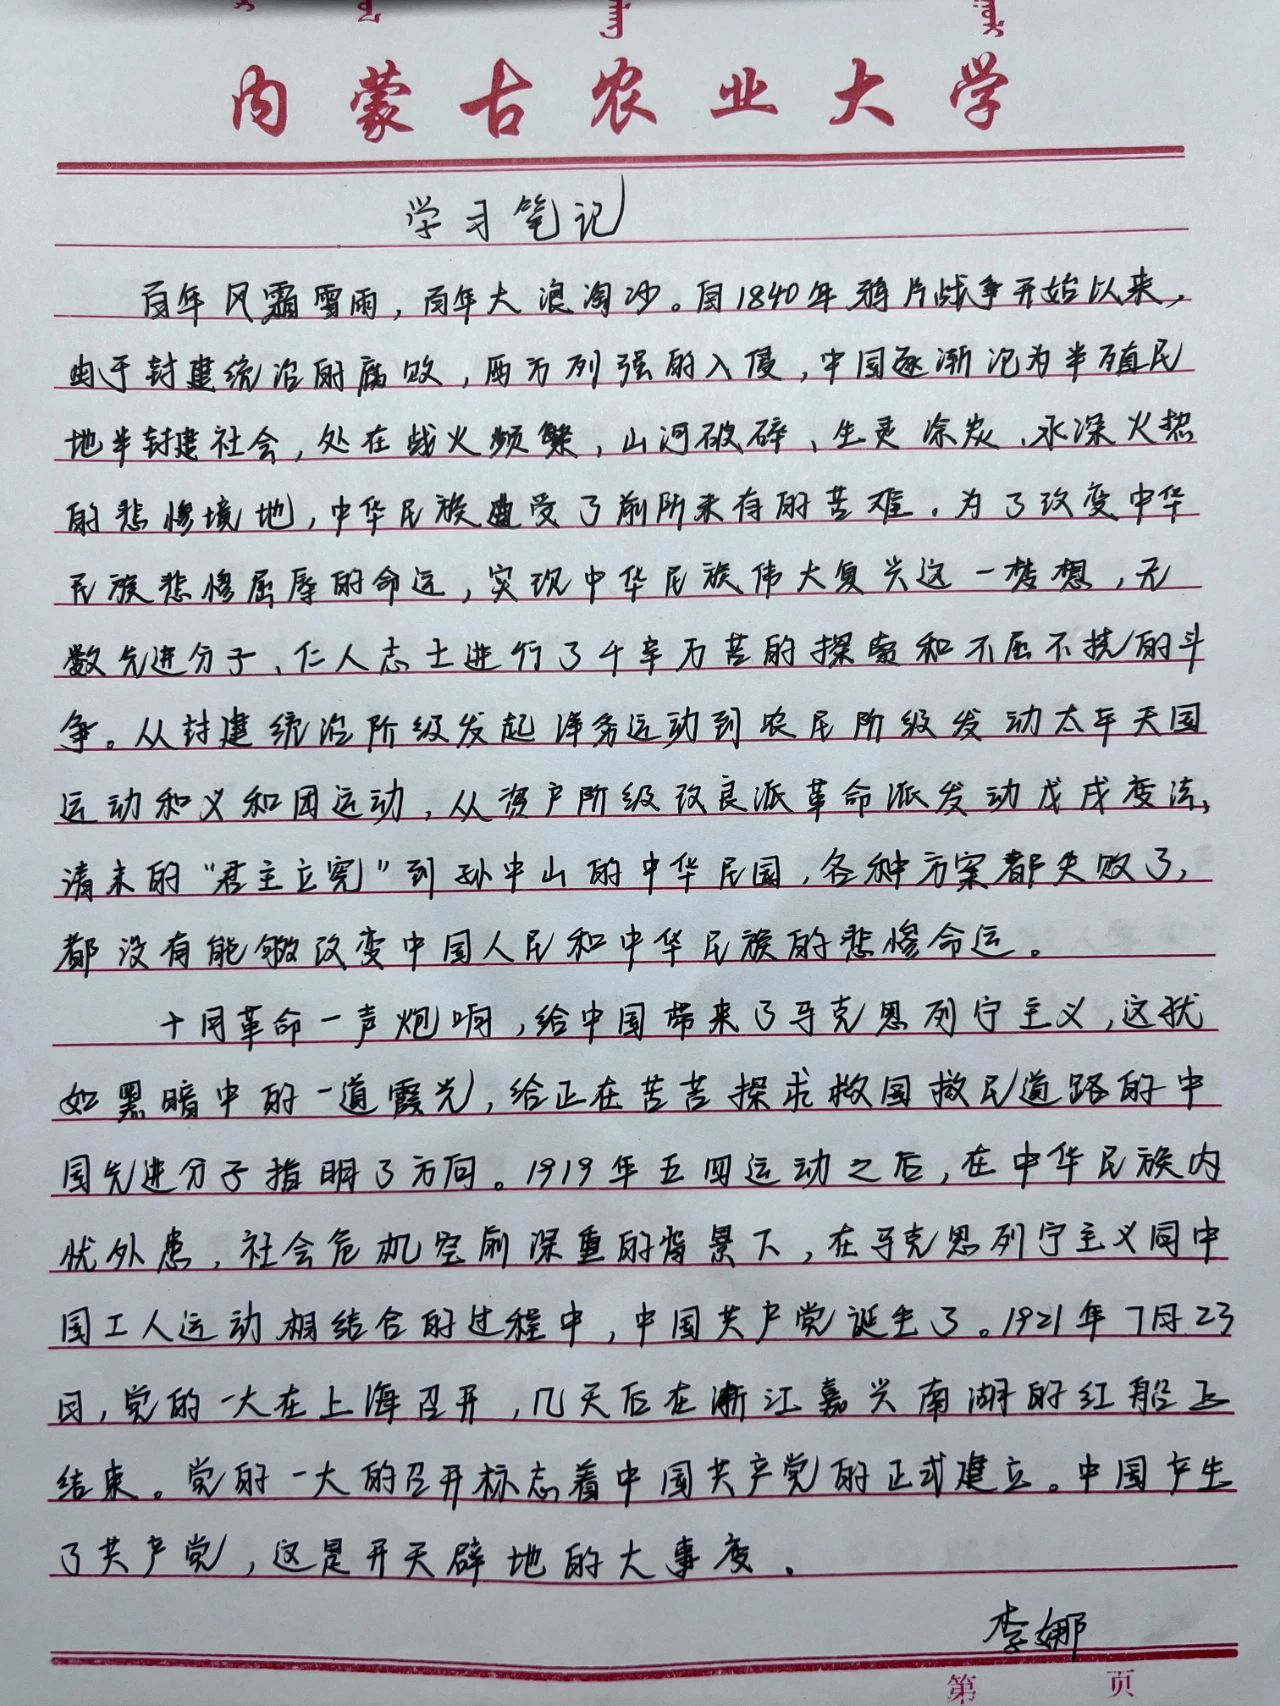 内蒙古农业大学
学习笔记
百年风霜雪雨，百年大浪淘沙。自1840年鸦片战争开始以来，
由于封建统治的腐败，西方列强的入侵，中国逐渐沦为半殖民
地半封建社会，处在战火频繁，山河破碎、生灵涂炭、水深火热
的悲惨境地，中华民族遭受了前所未有的苦难。为了改变中华
民族悲惨屈辱的命运，实现中华民族伟大复兴这一梦想，无
数先进分子、仁人志士进行了千辛万苦的探索和不屈不挠的斗
争。从封建统治阶级发起洋务运动到农民阶级发动太平天国
运动和义和团运动，从资产阶级改良派革命派发动戊戌变法，
清末的“君主立宪”到孙中山的中华民国，各种方案都失败了，
都没有能够改变中国人民和中华民族的悲惨命运。
十月革命一声炮响，给中国带来了马克思列宁主义，这犹
如黑暗中的一道霞光，给正在苦苦探求救国救民道路的中
国先进分子指明了方向。1919年五四运动之后，在中华民族内
忧外患，社会危机空前深重的背景下，在马克思列宁主义同中
国工人运动相结合的过程中，中国共产党诞生了。1921年7月23
日，党的一大在上海召开，几天后在浙江嘉兴南湖的红船上
结束。党的一大的召开标志着中国共产党的正式建立。中国产生
了共产党，这是开天辟地的大事变。
李娜
第 页